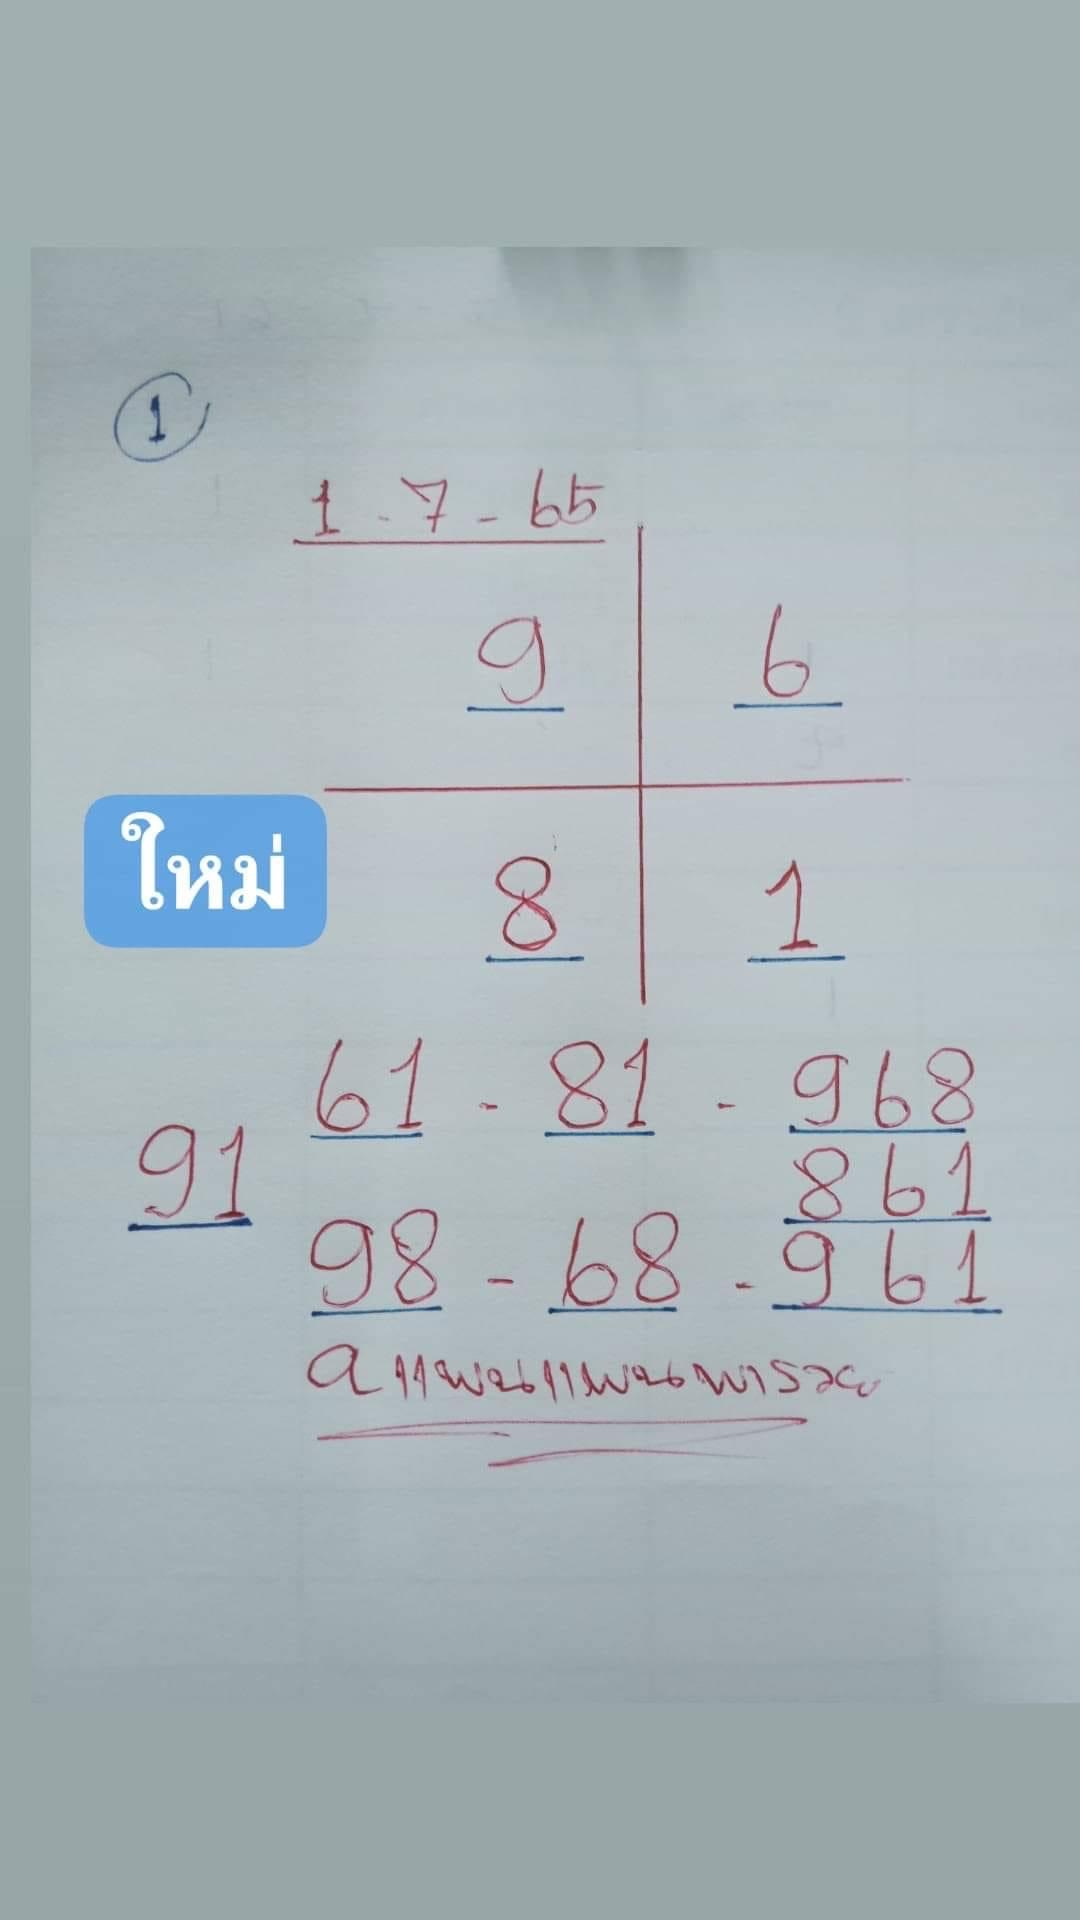 1
1 - 7 - 65
9 6
ใหม่
8 1
61 - 81 - 968
91
861
98 - 68 - 961